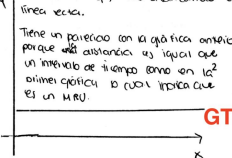 línea recta.
Tiene un parecido con la gráfica anterior
porque distancia es igual que
un intervalo de tiempo como en la
primer gráfica lo cual indica que
es un MRU.
GT
x